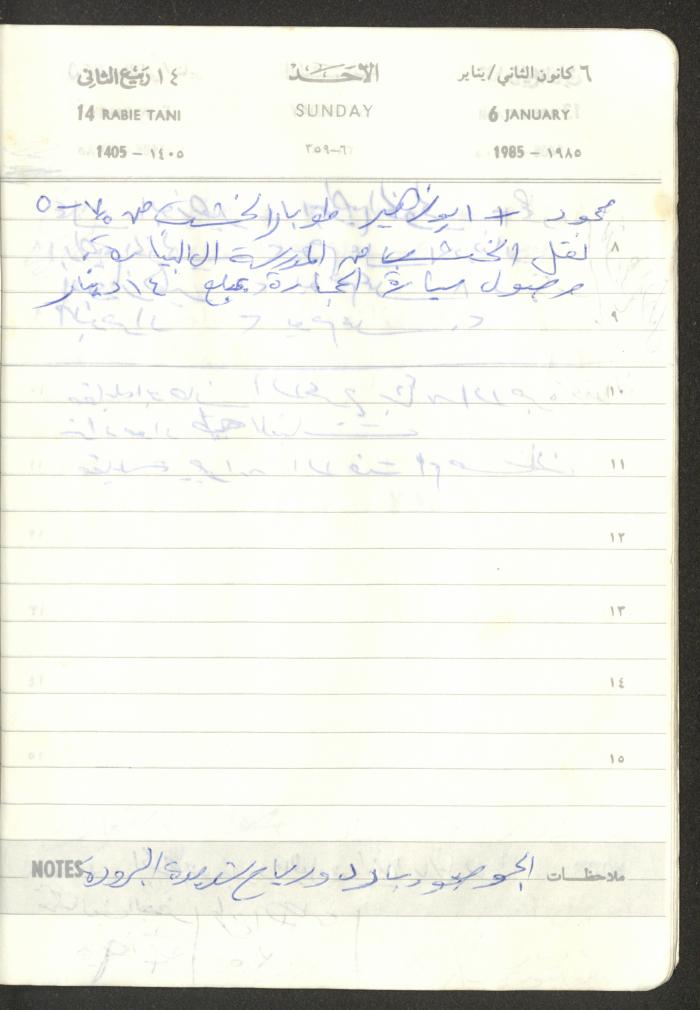 ٦ كانون الثاني / يناير الأحد ١٤ ربيع الثاني
6 JANUARY SUNDAY 14 RABIE TANI
1985 - ١٩٨٥ ٦-٣٥٩ 1405 - ١٤٠٥
محمود + ابو خضير طوبار الخشب من ٧-٥
٨
نقل الخشب من المدرسة الى البناية
وصول سيارة الحجارة بمبلغ ١٤ دينار
٩
١٠
١١
١٢
١٣
١٤
١٥
ملاحظات الجو صحو وبارد ورياح شديدة البرودة NOTES